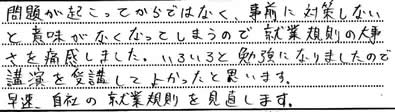 問題が起こってからではなく、事前に対策しない
と意味がなくなってしまうので就業規則の大事
さを痛感しました。いろいろと勉強になりましたので
講演を受講してよかったと思います。
早速、自社の就業規則を見直します。